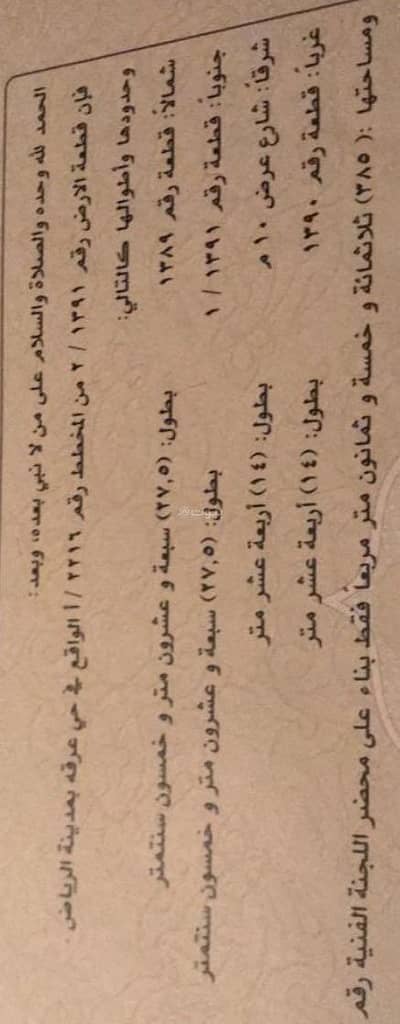 الحمد لله وحده والصلاة والسلام على من لا نبي بعده، وبعد:
فإن قطعة الارض رقم ١٣٩١ / ٢ من المخطط رقم ٢٢١٦ / أ الواقع في حي عرقه بمدينة الرياض.
وحدودها وأطوالها كالتالي:
شمالاً: قطعة رقم ١٣٨٩ بطول: (٢٧,٥) سبعة و عشرون متر و خمسون سنتمتر
جنوباً: قطعة رقم ١٣٩١ / ١ بطول: (٢٧,٥) سبعة و عشرون متر و خمسون سنتمتر
شرقاً: شارع عرض ١٠ م بطول: (١٤) أربعة عشر متر
غرباً: قطعة رقم ١٣٩٠ بطول: (١٤) أربعة عشر متر
ومساحتها :( ٣٨٥) ثلاثمائة و خمسة و ثمانون متر مربعاً فقط بناء على محضر اللجنة الفنية رقم